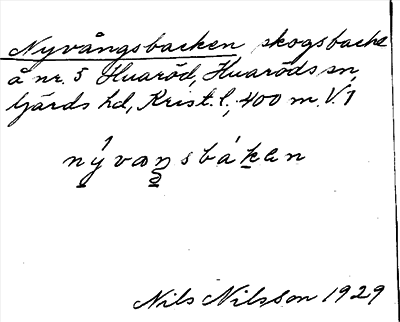 Nyvångsbacken skogsbacke
å nr. 5 Huaröd, Huaröds sn,
Gärds hd, Krist. l., 400 m. V. 1
nývaŋsbákan
Nils Nilsson 1929